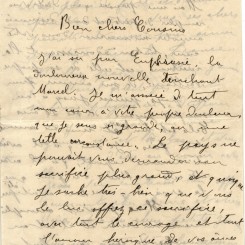 Bien chers Cousins
J'ai su par Euphrasie, la
douloureuse nouvelle touchant
Marcel. Je m'associe de tout
mon cœur à votre propre douleur
que je sens si grande, en une
telle circonstance. Le pays ne
pouvait vous demander un
sacrifice plus grand, et quoique
je sache très-bien que vous
le lui offrez sacrifice,
avec tout le courage et tout
l'amour héroïque de vos âmes